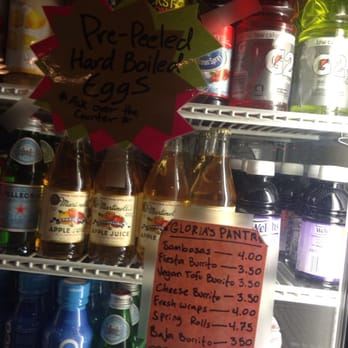 Pre-Peeled
Hard Boiled
Eggs
* Ask over the
Counter *
Ocean Spray
G2
G2
S.PELLEGRINO
Martinelli's
APPLE JUICE
Martinelli's
APPLE JUICE
Welch's
GLORIA'S PANTR
Sambosas 4.00
Fiesta Burrito — 3.50
Vegan Tofu Burrito — 3.50
Cheese Burrito — 3.50
Fresh wraps — 4.00
Spring Rolls — 4.75
Baja Burrito — 3.50